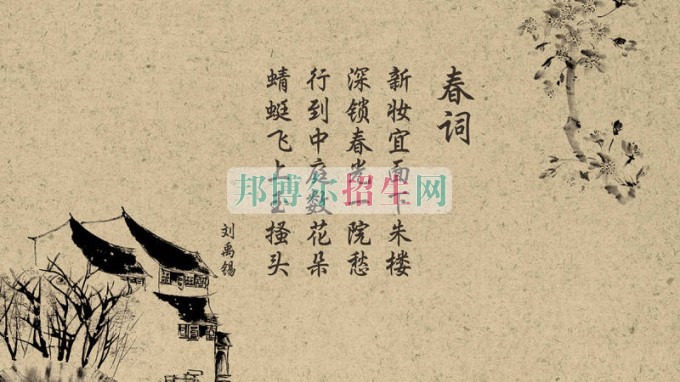 春词
新妆宜面下朱楼
深锁春光一院愁
行到中庭数花朵
蜻蜓飞上玉搔头
刘禹锡
邦博尔招生网